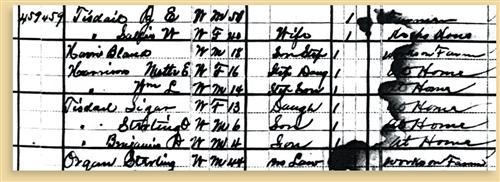 459 459 Tisdail R E W M 50 1 Farmer
" Sallie W W F 40 Wife 1 Keeps House
Harris Bland W M 18 Son Step 1 works on Farm
Harrison Mattie E W F 16 Step Daug 1 at Home
" Wm L W M 14 Step Son 1 at Home
Tisdail Sigar W F 13 Daugh 1 at Home
" Sterling D W M 6 Son 1 at Home
" Benjamin D W M 4 Son 1 at Home
Organ Sterling W M 44 Law works on Farm